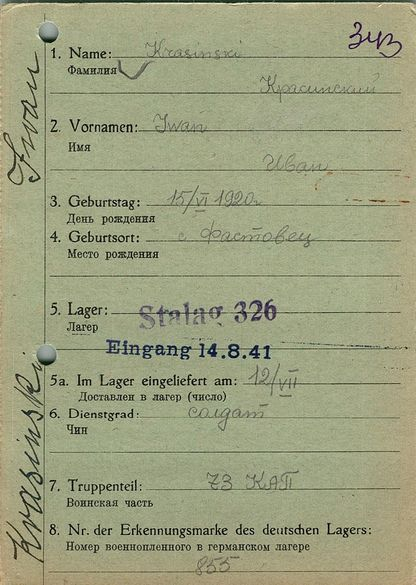 343
1. Name: Krasinski
Фамилия
Красинский
2. Vornamen: Iwan
Имя
Иван
3. Geburtstag: 15/VI 1920г.
День рождения
4. Geburtsort: с. Фастовец
Место рождения
5. Lager: Stalag 326
Лагер
Eingang 14.8.41
5a. Im Lager eingeliefert am: 12/VII
Доставлен в лагер (число)
6. Dienstgrad: солдат
Чин
7. Truppenteil: 73 КАП
Воинская часть
8. Nr. der Erkennungsmarke des deutschen Lagers:
Номер военнопленного в германском лагере
855
Krasinski Iwan